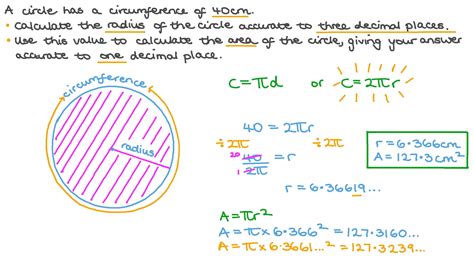 A circle has a circumference of 40cm.
• Calculate the radius of the circle accurate to three decimal places.
• Use this value to calculate the area of the circle, giving your answer
accurate to one decimal place.
circumference
radius
C=πd or C=2πr
40=2πr
÷2π ÷2π
20 40/1 2π = r
r=6.36619...
r=6.366cm
A=127.3cm²
A=πr²
A=π×6.366²=127.3160...
A=π×6.3661...²=127.3239...